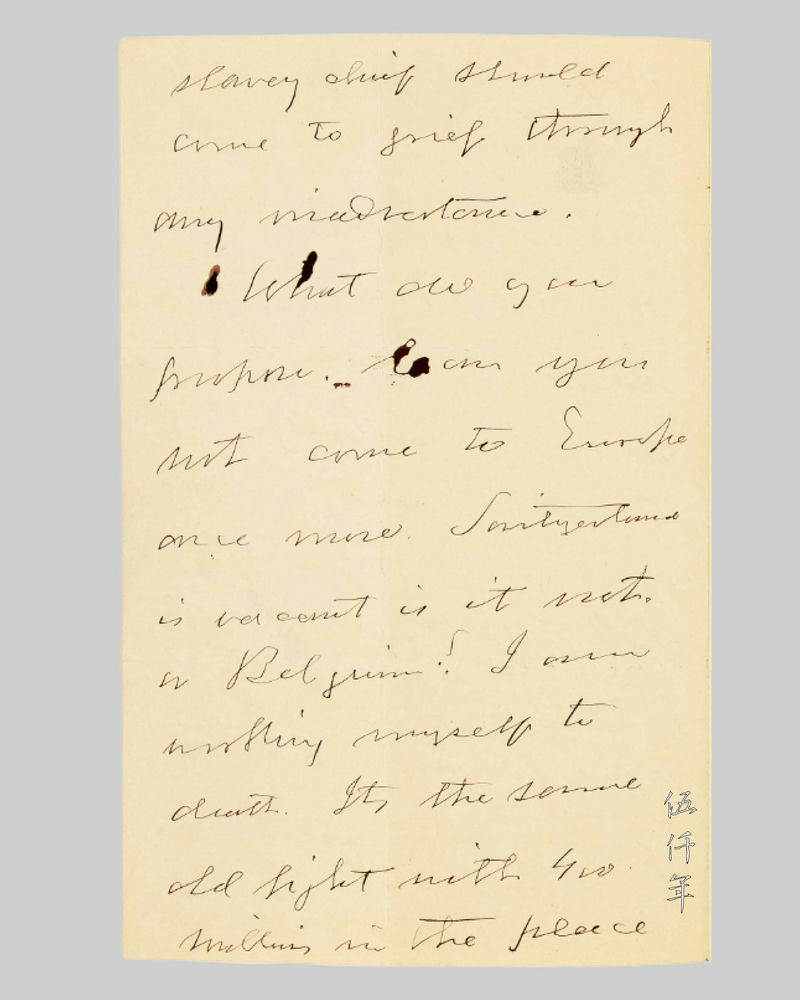 slavey chief should
come to grief through
any inadvertance.
What do you
propose. Can you
not come to Europe
once more. Switzerland
is vacant is it not.
or Belgium? I am
working myself to
death. Its the same
old fight with 400
millions in the place
伍仟年